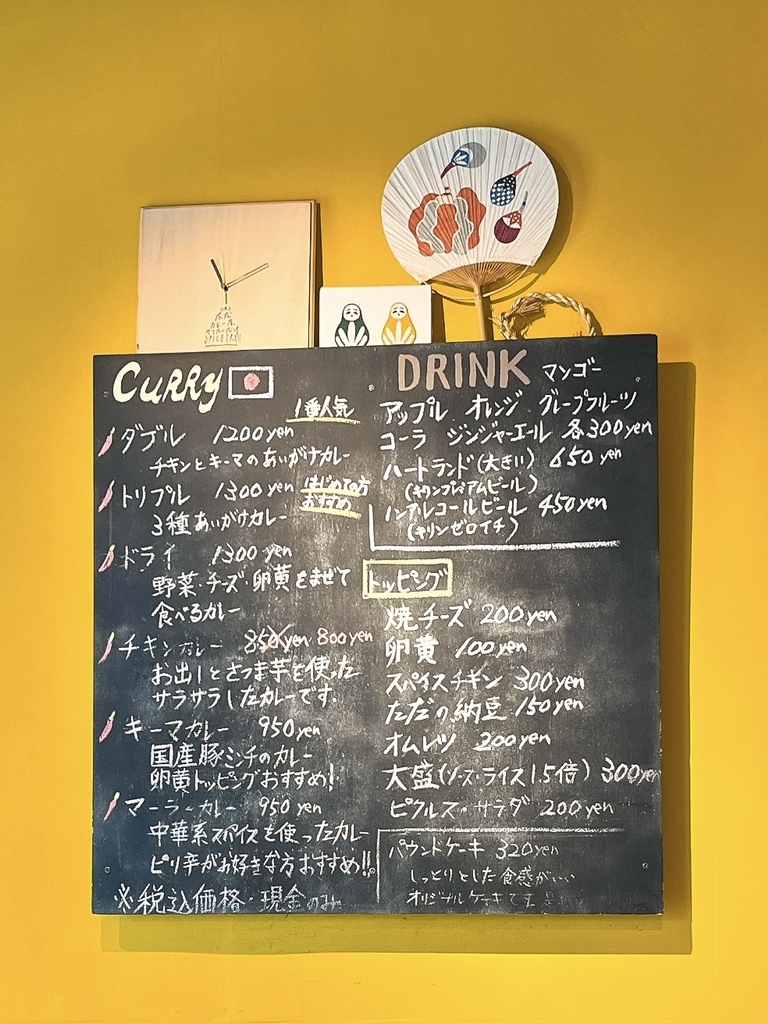 CURRY
1番人気
ダブル 1200yen
チキンとキーマのあいがけカレー
トリプル 1300yen はじめての方
おすすめ
3種あいがけカレー
ドライ 1300yen
野菜・チーズ・卵黄をまぜて
食べるカレー
チキンカレー 850yen 800yen
お出しとさつま芋を使った
サラサラしたカレーです
キーマカレー 950yen
国産豚ミンチのカレー
卵黄トッピングおすすめ!
マーラーカレー 950yen
中華系スパイスを使ったカレー
ピリ辛がお好きな方おすすめ!!
※税込価格・現金のみ
DRINK マンゴー
アップル オレンジ グレープフルーツ
コーラ ジンジャーエール 各300yen
ハートランド(大きい) 650yen
(キリンプレミアムビール)
ノンアルコールビール 450yen
(キリンゼロイチ)
トッピング
焼チーズ 200yen
卵黄 100yen
スパイスチキン 300yen
ただの納豆 150yen
オムレツ 200yen
大盛(ソース・ライス1.5倍) 300yen
ピクルス・サラダ 200yen
パウンドケーキ 320yen
しっとりとした食感がいい
オリジナルケーキです